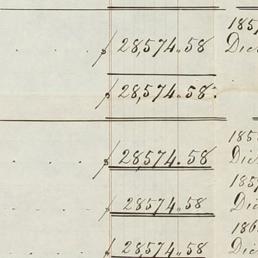 185
$ 28,574.58 Dic
$ 28,574.58
185
$ 28,574.58 Dic
185
$ 28574.58 Dic
186
$ 28,574.58 Dic